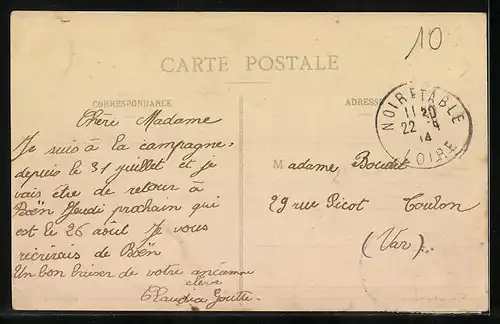 10
CARTE POSTALE
CORRESPONDANCE
ADRESSE
NOIRETABLE
11 20
22 8
14
LOIRE
Chère Madame
Je suis à la campagne.
depuis le 31 juillet et je
vais être de retour à
Boën Jeudi prochain qui
est le 26 août Je vous
récrirais de Boën
Un bon baiser de votre ancienne
élève
Claudia Goutte
Madame Boudet
29 rue Picot Toulon
(Var).